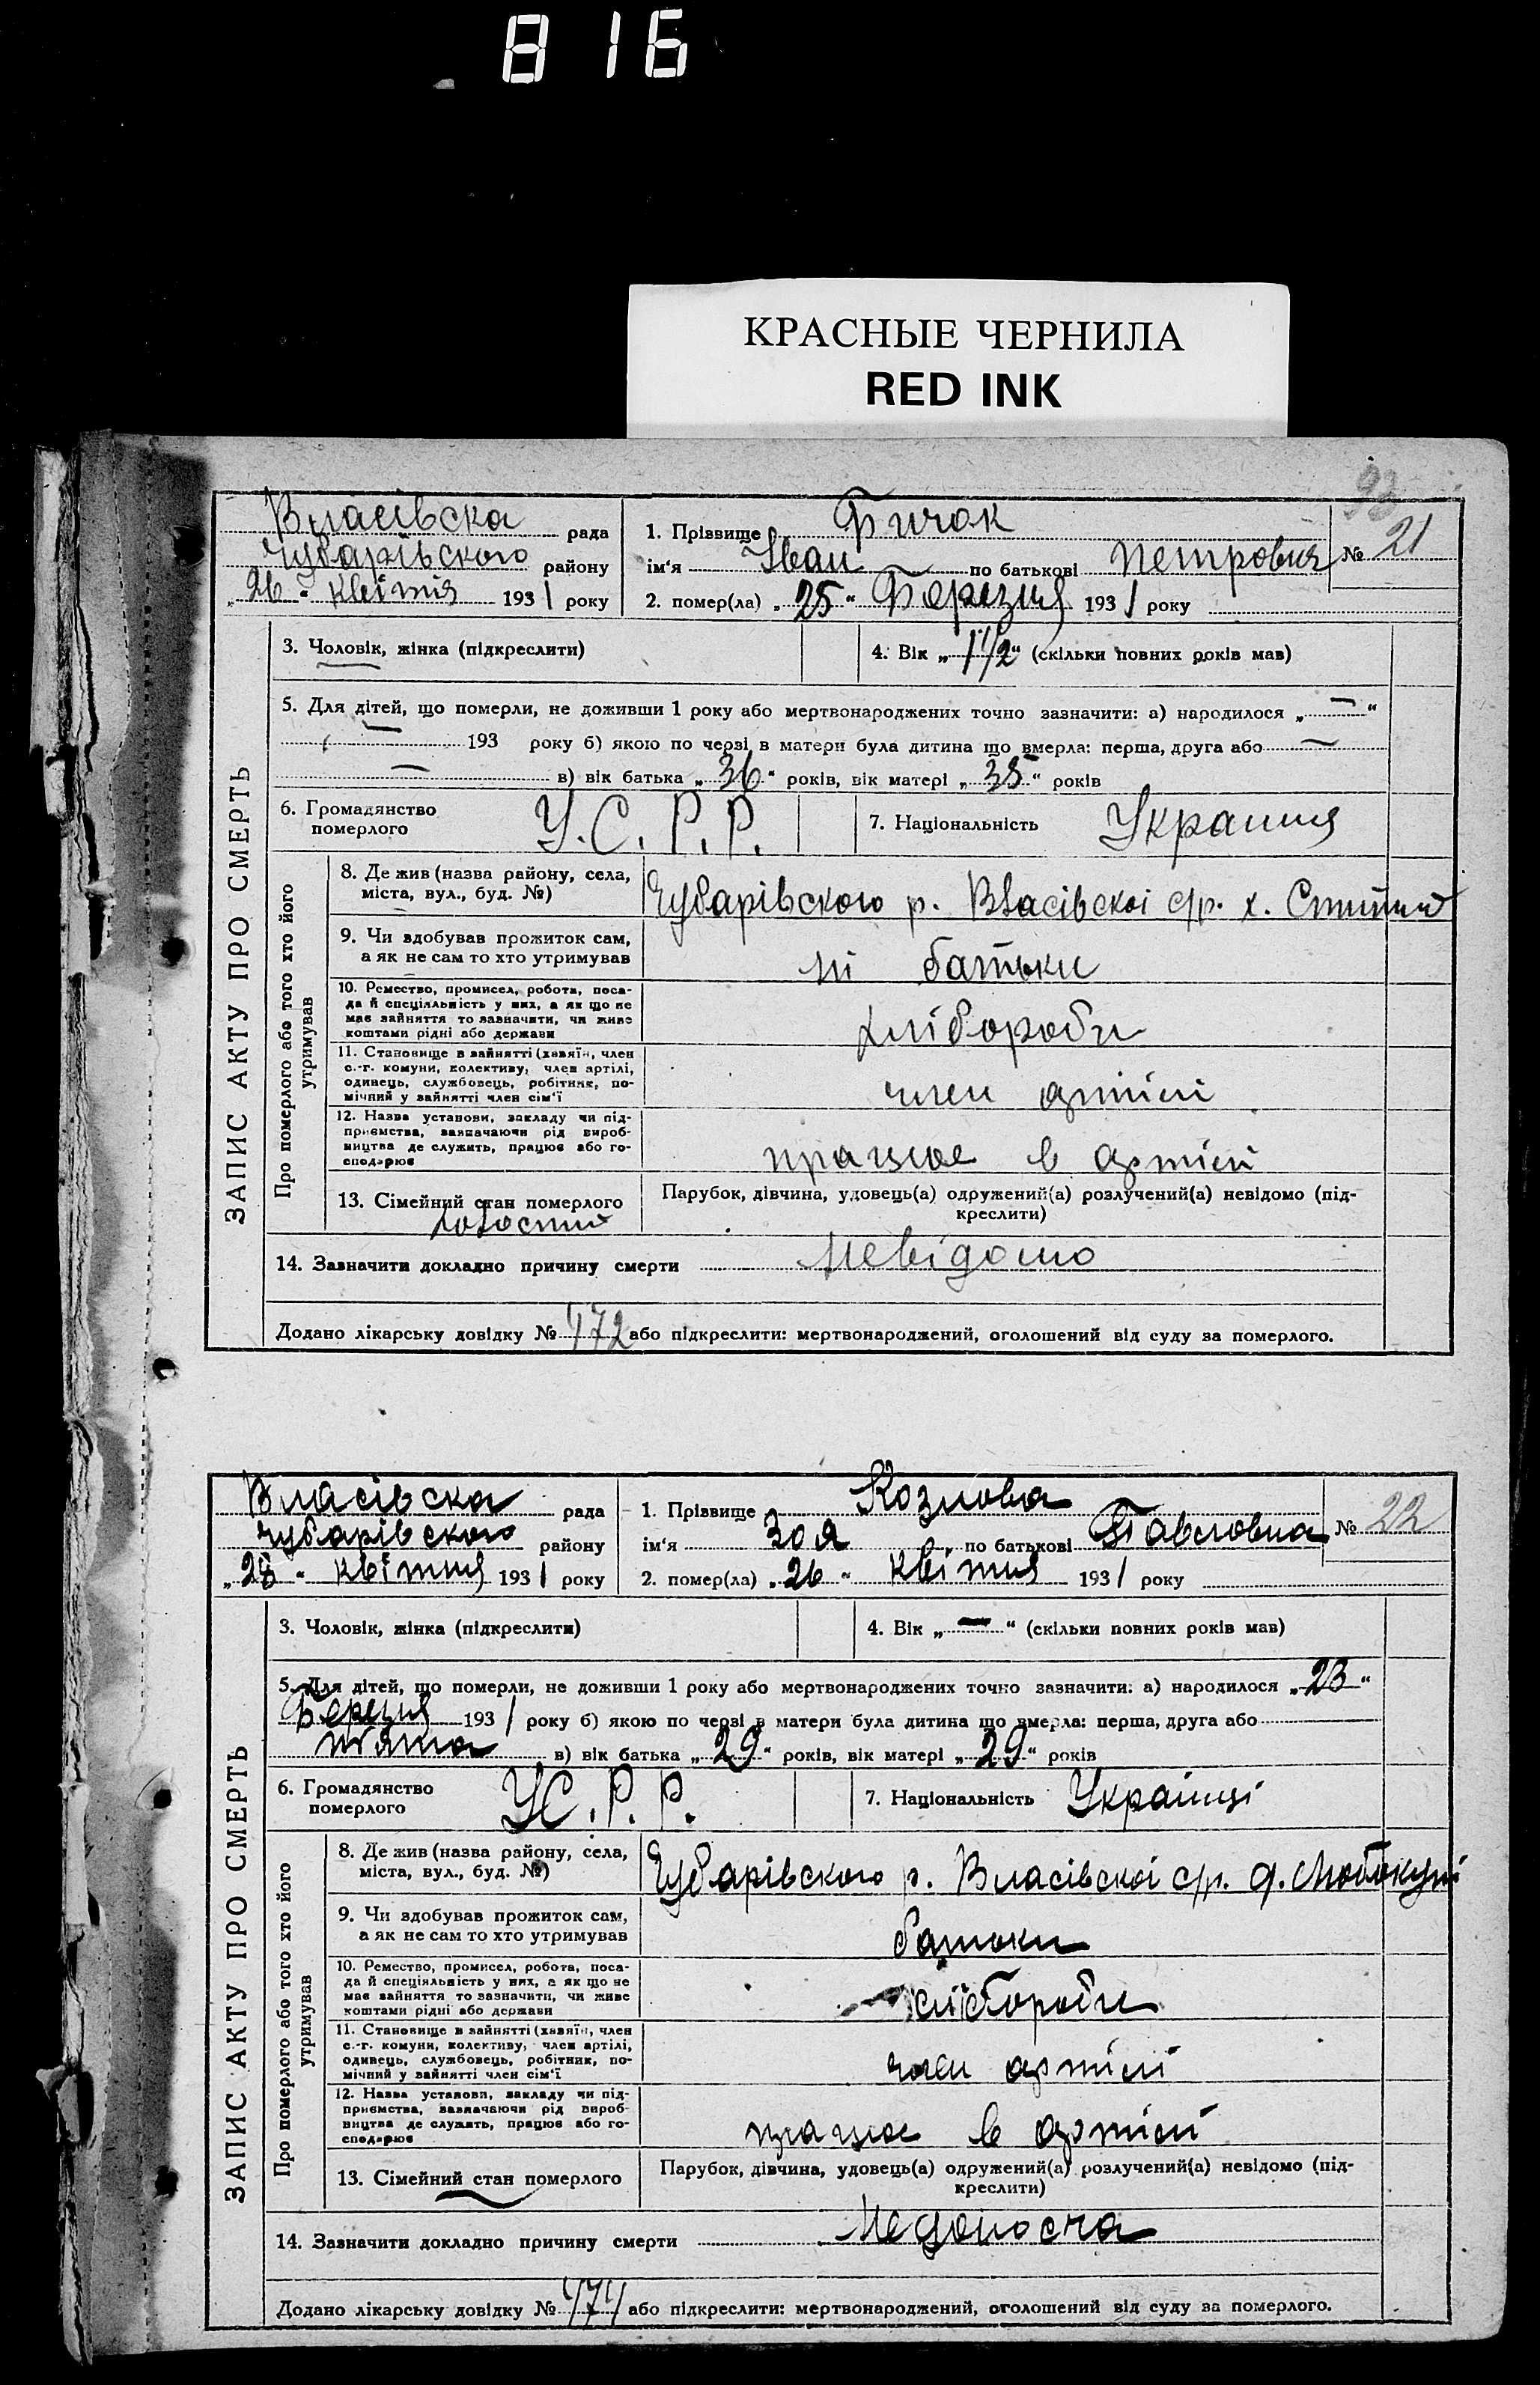 816
КРАСНЫЕ ЧЕРНИЛА
RED INK
93
Власівска рада
Чубарівського району
„26“ квітня 1931 року
1. Прізвище Бичок
ім'я Іван по батькові Петровия № 21
2. помер(ла) „25“ Березня 1931 року
ЗАПИС АКТУ ПРО СМЕРТЬ
3. Чоловік, жінка (підкреслити)
4. Вік „1 1/2“ (скільки повних років мав)
5. Для дітей, що померли, не доживши 1 року або мертвонароджених точно зазначити: а) народилося „—“
— 193 року б) якою по черзі в матери була дитина що вмерла: перша, друга або —
— в) вік батька „36“ років, вік матері „35“ років
6. Громадянство
померлого
У.С.Р.Р.
7. Національність Украиня
Про померлого або того хто його
утримував
8. Де жив (назва району, села,
міста, вул., буд. №)
Чубарівского р. Власівскоі с/р. х.
9. Чи здобував прожиток сам,
а як не сам то хто утримував
ні батьки
10. Ремество, промисел, робота, поса-
да й спеціяльність у них, а як що не
має зайняття то зазначити, чи живе
коштами рідні або держави
хлібороби
11. Становище в зайнятті (хазяїн, член
с.-г. комуни, колективу, член артілі,
одинець, службовець, робітник, по-
мічний у зайнятті член сім'ї
член артілі
12. Назва установи, закладу чи під-
приємства, зазначаючи рід вироб-
ництва де служить, працює або го-
сподарює
працюе в артілі
13. Сімейний стан померлого
холостий
Парубок, дівчина, удовець(а) одружений(а) розлучений(а) невідомо (під-
креслити)
14. Зазначити докладно причину смерти невідомо
Додано лікарську довідку № 472 або підкреслити: мертвонароджений, оголошений від суду за померлого.
Власівска рада
Чубарівского району
„28“ квітня 1931 року
1. Прізвище Козлова
ім'я Зоя по батькові Павловна № 22
2. помер(ла) „26“ квітня 1931 року
ЗАПИС АКТУ ПРО СМЕРТЬ
3. Чоловік, жінка (підкреслити)
4. Вік „—“ (скільки повних років мав)
5. Для дітей, що померли, не доживши 1 року або мертвонароджених точно зазначити: а) народилося „23“
Березня 1931 року б) якою по черзі в матери була дитина що вмерла: перша, друга або
пята в) вік батька „29“ років, вік матері „29“ років
6. Громадянство
померлого
УС.Р.Р.
7. Національність Украінці
Про померлого або того хто його
утримував
8. Де жив (назва району, села,
міста, вул., буд. №)
Чубарівского р. Власівскоі с/р.
9. Чи здобував прожиток сам,
а як не сам то хто утримував
батьки
10. Ремество, промисел, робота, поса-
да й спеціяльність у них, а як що не
має зайняття то зазначити, чи живе
коштами рідні або держави
хлібороби
11. Становище в зайнятті (хазяїн, член
с.-г. комуни, колективу, член артілі,
одинець, службовець, робітник, по-
мічний у зайнятті член сім'ї
член артілі
12. Назва установи, закладу чи під-
приємства, зазначаючи рід вироб-
ництва де служить, працює або го-
сподарює
працюе в артілі
13. Сімейний стан померлого
Парубок, дівчина, удовець(а) одружений(а) розлучений(а) невідомо (під-
креслити)
14. Зазначити докладно причину смерти Недоносча
Додано лікарську довідку № 474 або підкреслити: мертвонароджений, оголошений від суду за померлого.